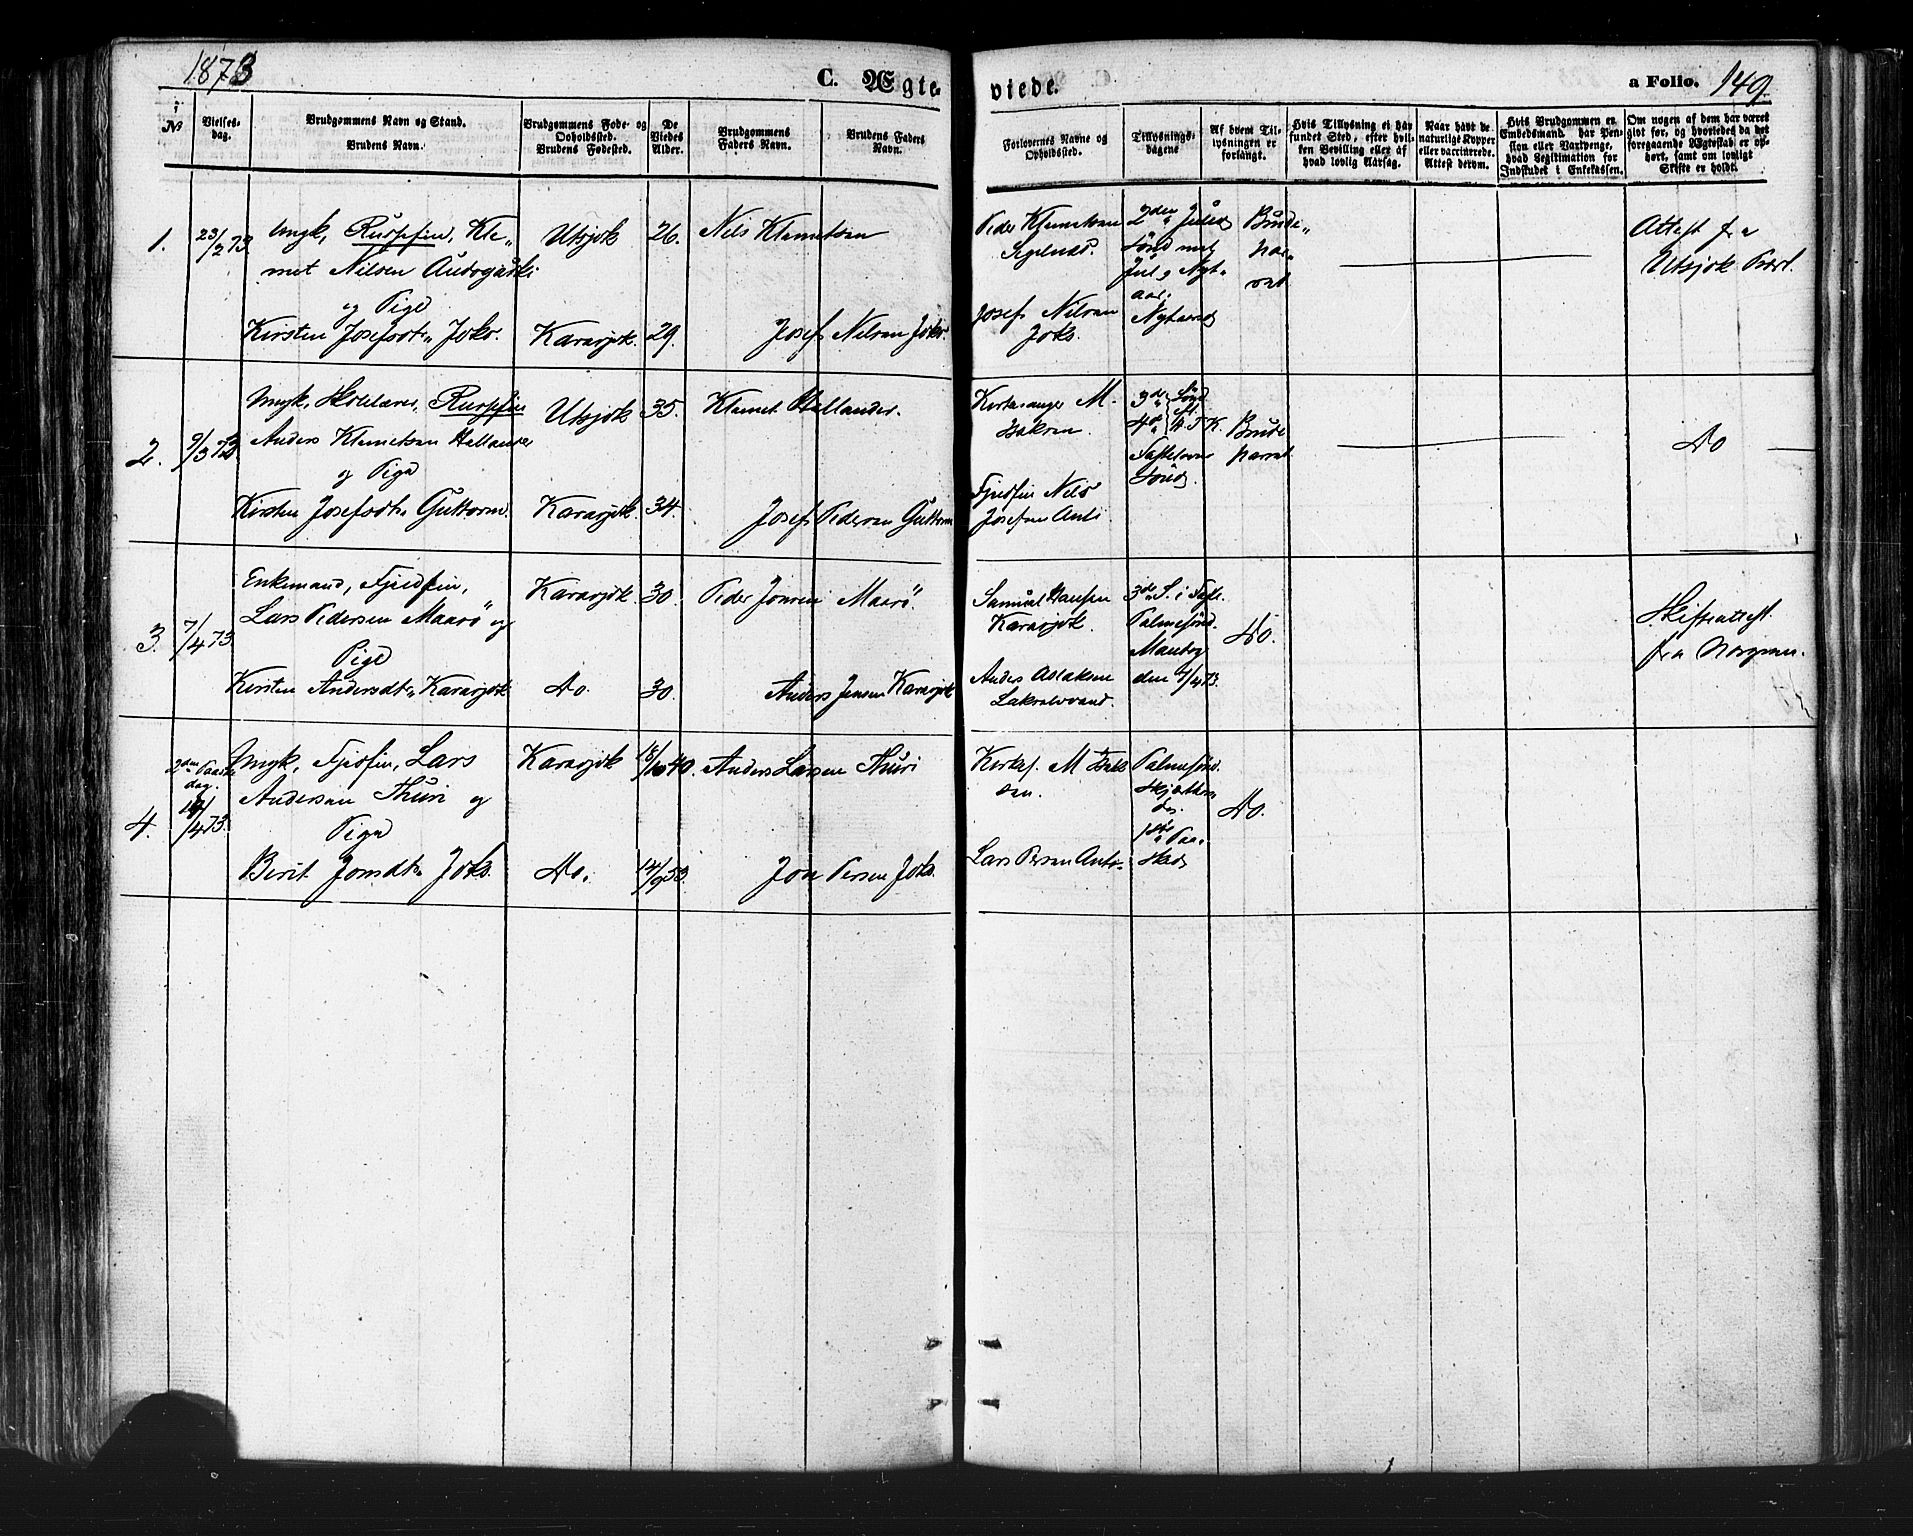 1873
C. Ægte
viede.
a Folio. 149.
No
Vielses-dag.
Brudgommens Navn og Stand.
Brudens Navn.
Brudgommens Føde- og Opholdssted.
Brudens Fødested.
De Viedes Alder.
Brudgommens Faders Navn.
Brudens Faders Navn.
Forlovernes Navne og Opholdssted.
Tillysnings-dagene
Af hvem Tillysningen er forlangt.
Hvis Tillysning ei har fundet Sted, efter hvilken Bevilling eller af hvad lovlig Aarsag.
Naar havt de naturlige Kopper eller vaccinerede. Attest derom.
Hvis Brudgommen er Embedsmand, har Pension eller Vartpenge, hvad Legitimation for Indskudet i Enkekassen.
Om nogen af dem har været givt før, og hvorledes da det foregaaende Ægteskab er ophørt, samt om lovligt Skifte er holdt.
1. 23/2 73.
Ungk, Russefin, Kle„
met Nilsen
og Pige
Kirsten Josefsdt„ Joks.
Utsjok
Karasjok.
26.
29.
Nils Klemetsen
Josef Nilsen Joks.
Peder Klemetsen
Josef Nilsen
Joks.
2den Juled
Sønd mel
Jul & Nyt„
aar.
Nytaarsd
Brude„
par„
ret
Attest fra
Utsjok Præst.
2. 9/3 73
Ungk, Skolelærer, Russefin
Anders Klemetsen Hellander
og Pige
Kirsten Josefsdt„ Guttorm.
Utsjok
Karasjok.
35.
34.
Klemet Hellander.
Josef Pedersen Guttorm
Kirkesanger M.
Isaksen.
Fjeldfin Nils
Josefsen Anti
3die Sønd
4de
Fastelavns
Sønd.
Brude
parret
Do
3. 7/4 73.
Enkemand, Fjeldfin,
Lars Pedersen Maarø og
Pige
Kirsten Andersdt„ Karasjok
Karasjok.
Do.
30.
30.
Peder Jonsen Maarø.
Anders Jensen Karasjok
Samuel Hansen
Karasjok.
Anders Aslaksen
3die S. i Faste.
Palmesønd.
Mandag
den 7/4 73.
Do.
Skifteattest
fra
4. 2den Paaske
dag.
14/4 73.
Ungk, Fjeldfin, Lars
Andersen Thuri og
Pige
Berit Jonsdt„ Joks.
Karasjok
Do.
18/10 40.
14/9 53.
Anders Larsen Thuri
Jon Persen Joks.
Kirkes. M Isak
sen.
Lars Persen Anti.
Palmesønd.
Skjærthors
dag.
1ste Paa„
sked
Do.